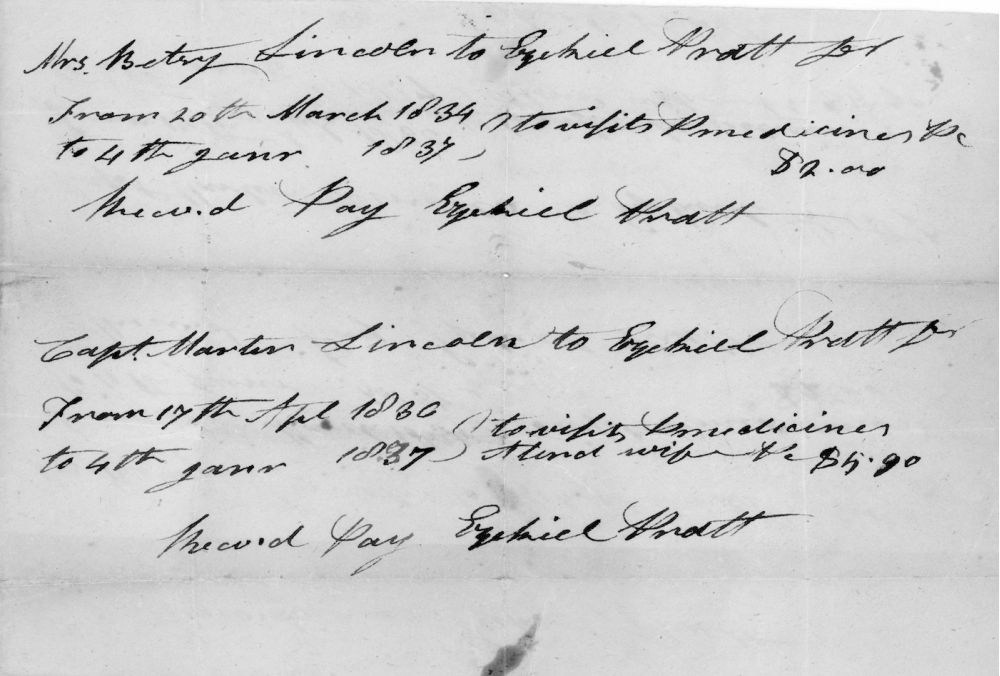 Mrs. Betsy Lincoln to Ezekiel Pratt Dr
From 20th March 1834 ) to visits & medicines &c
to 4th janr 1837 $2.00
Recv.d Pay Ezekiel Pratt
Capt. Martin Lincoln to Ezekiel Pratt Dr
From 17th Apl 1836 ) to visits & medicines
to 4th janr 1837 Atend wife &c $5.90
Recv.d Pay Ezekiel Pratt